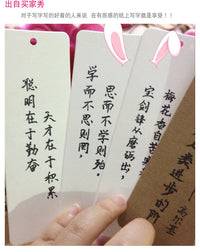 出自买家秀
对于写字写的好看的人来说 在有质感的纸上写字就是享受!!
聪明在于勤奋
天才在于积累
学而不思则罔,
思而不学则殆
宝剑锋从磨砺出,
梅花香自苦寒
类进步的阶
高尔基